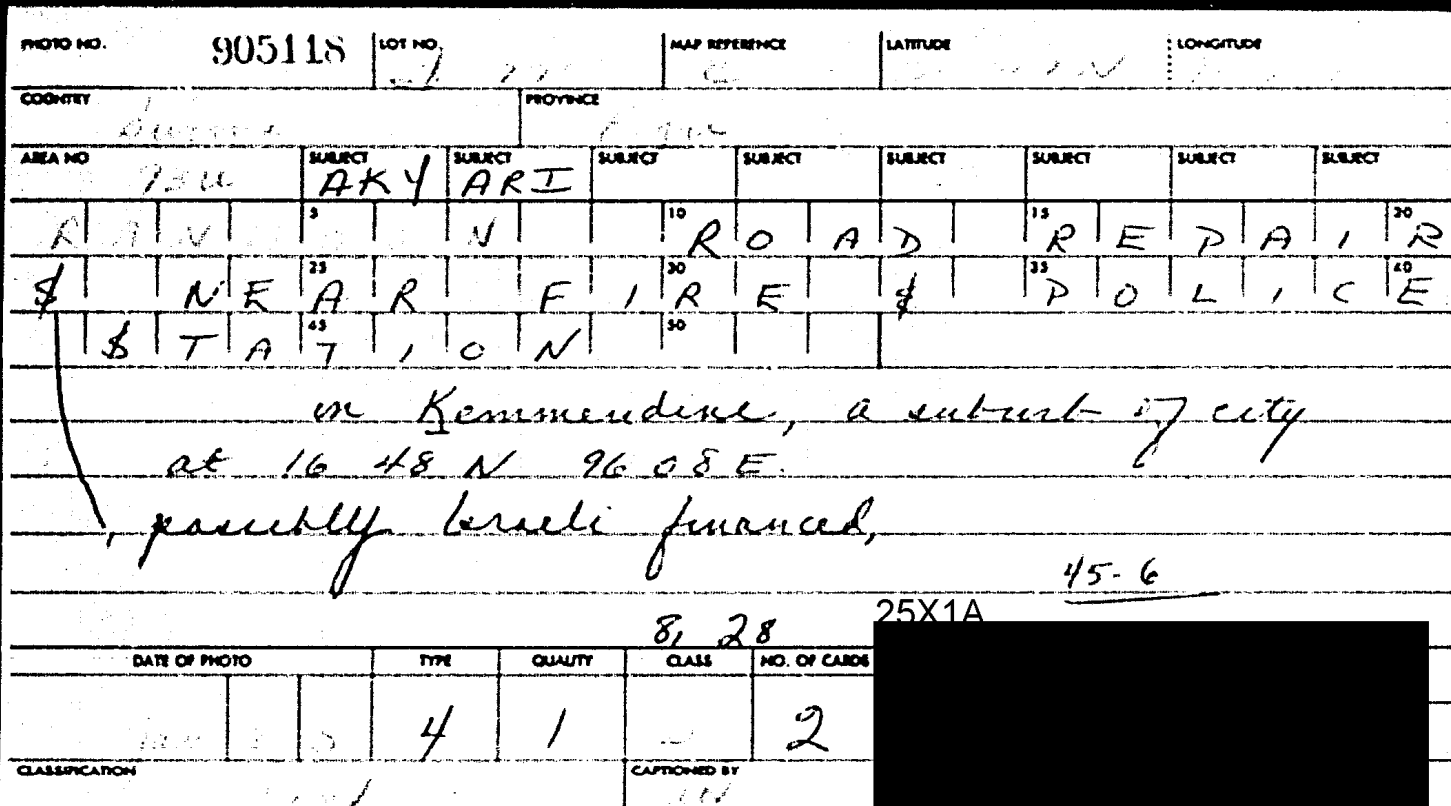 PHOTO NO. 905118 LOT NO. MAP REFERENCE LATITUDE N LONGITUDE
COUNTRY Burma PROVINCE
AREA NO SUBJECT AKY SUBJECT ARI SUBJECT SUBJECT SUBJECT SUBJECT SUBJECT SUBJECT
5 10 15 20
RAN N ROAD REPAIR
25 30 35 40
$ NEAR FIRE $ POLICE
45 50
$TATION
in Kemmendine, a suburb of city
at 16 48 N 96 08 E.
, possibly Israeli financed,
45-6
8, 28 25X1A
DATE OF PHOTO TYPE QUALITY CLASS NO. OF CARDS
4 1 2
CLASSIFICATION CAPTIONED BY